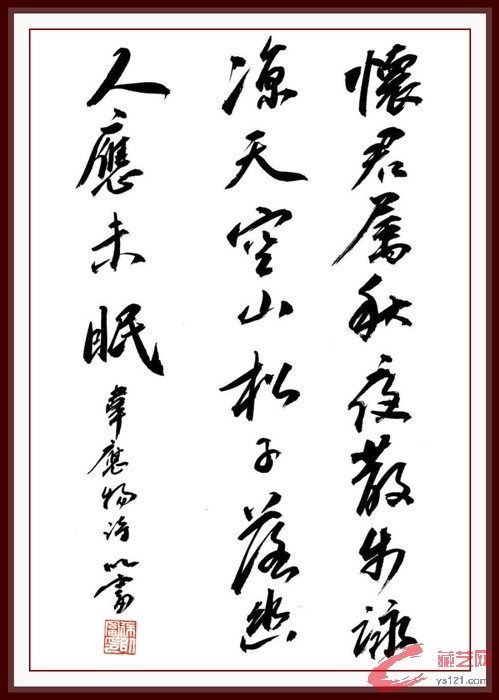 懷君屬秋夜散步詠
涼天空山松子落幽
人應未眠
韋應物詩
藏艺网
ys121.com